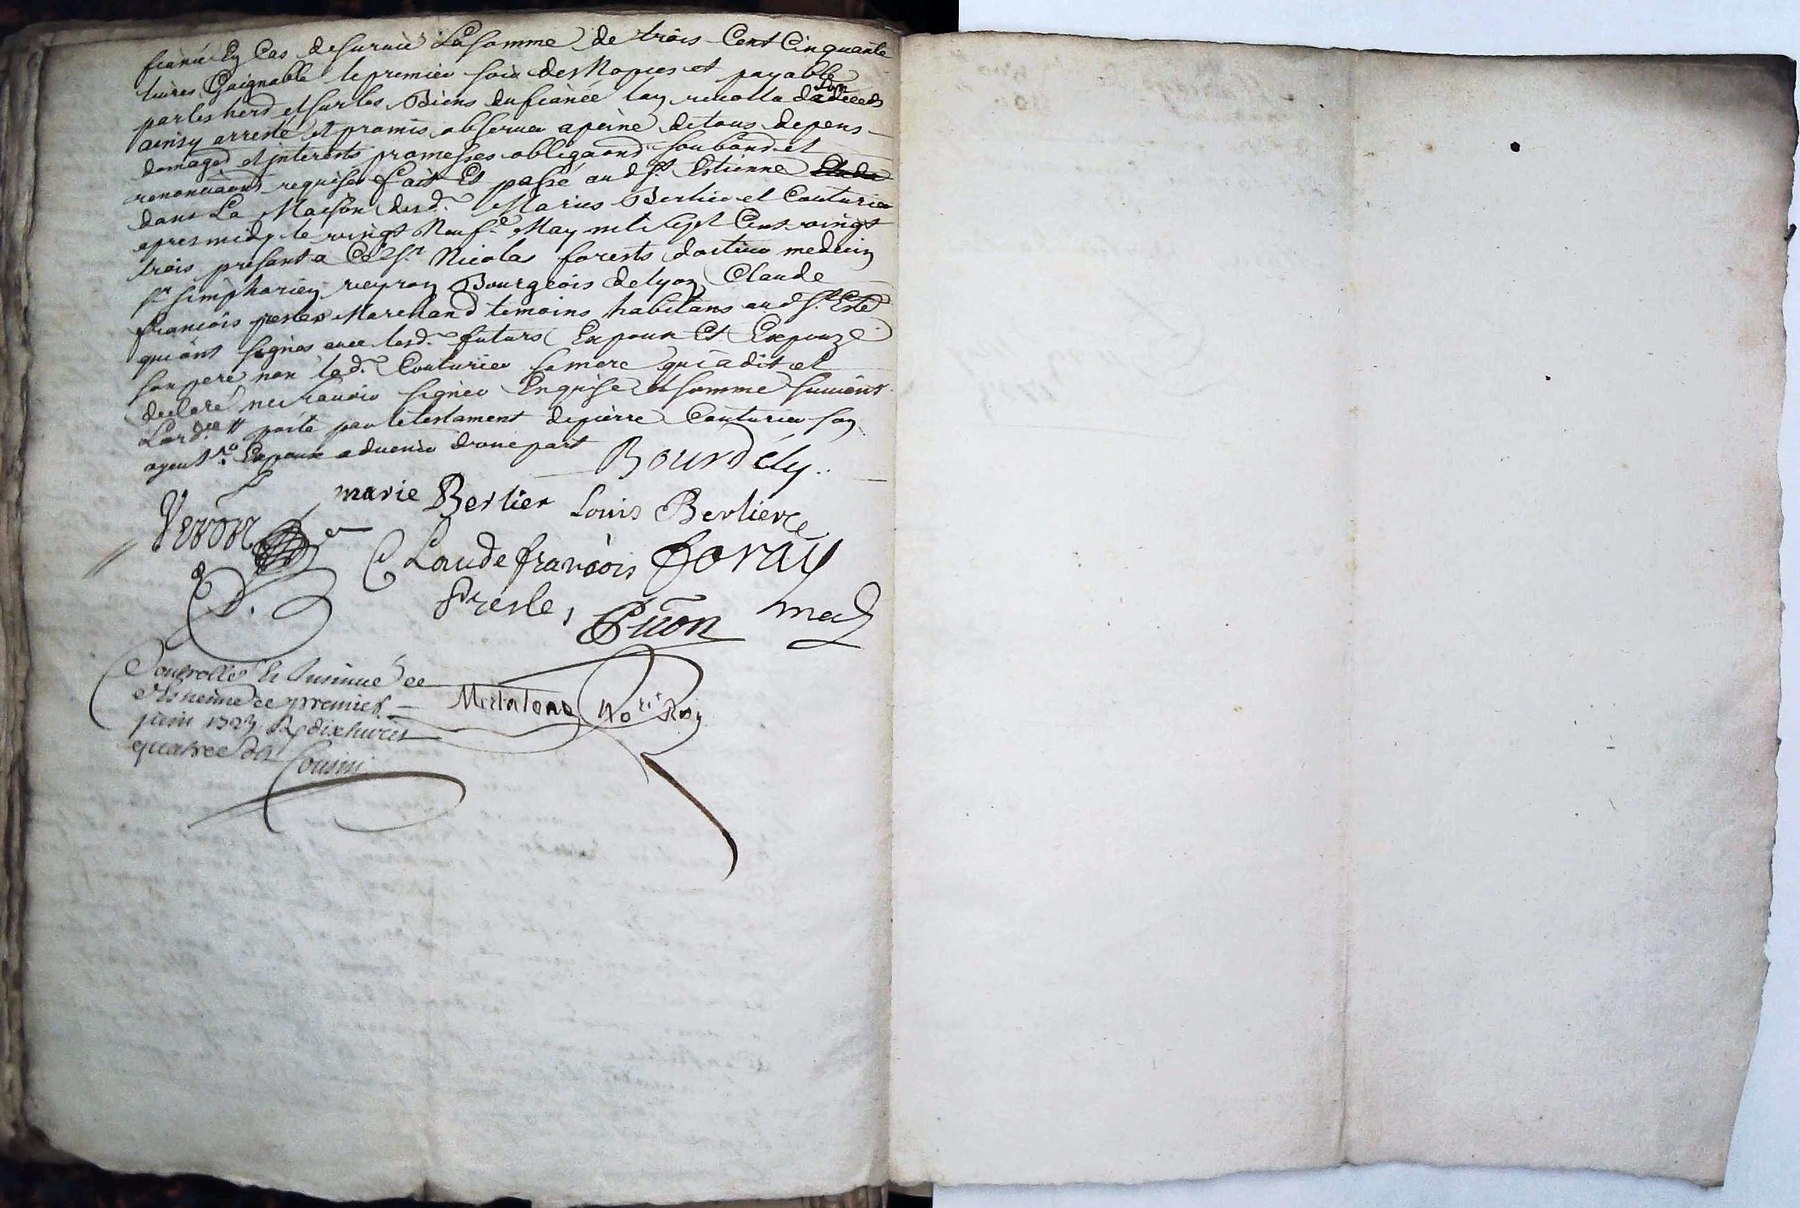 fiancé En Cas desurvie La somme de trois Cent Cinquante
livres Gaignable le premier soir des Nopces et payable
par les herd et sur les Biens du fiancé lay
son
ainsy arresté et promis observer a peine de tous depens
domages et interests promesses obligaōns soubōns et
renonciaōns requises fait Et passé aud St Estienne
dans La Maison desd. Maries Berlier et Couturier
apres midy le vingt Neuf.e May mil sept Cens vingt
trois presants a Ce Sr. Nicolas forests docteur medecin
sr simphorien reyron Bourgeois de lyon Claude
francois presles Marchand temoins habitans aud St. Este
qui ont signés avec lesd. futurs Expoux Et Expouze
son pere non lad. Couturier sa mere qui a dit et
declaré ne scavoir signer Enquise et somme suivant
Lord.ce // porté par le testament de pierre Couturier son
ayeul Expoux advenir d'une part
Bourdély
marie Berlier Louis Berliere
Veron
Claude francois foray
Presle, med
Controllé Et Insinué
Estienne ce premier
juin 1723 R dix huict
quatre
Cousin
No.re Roy